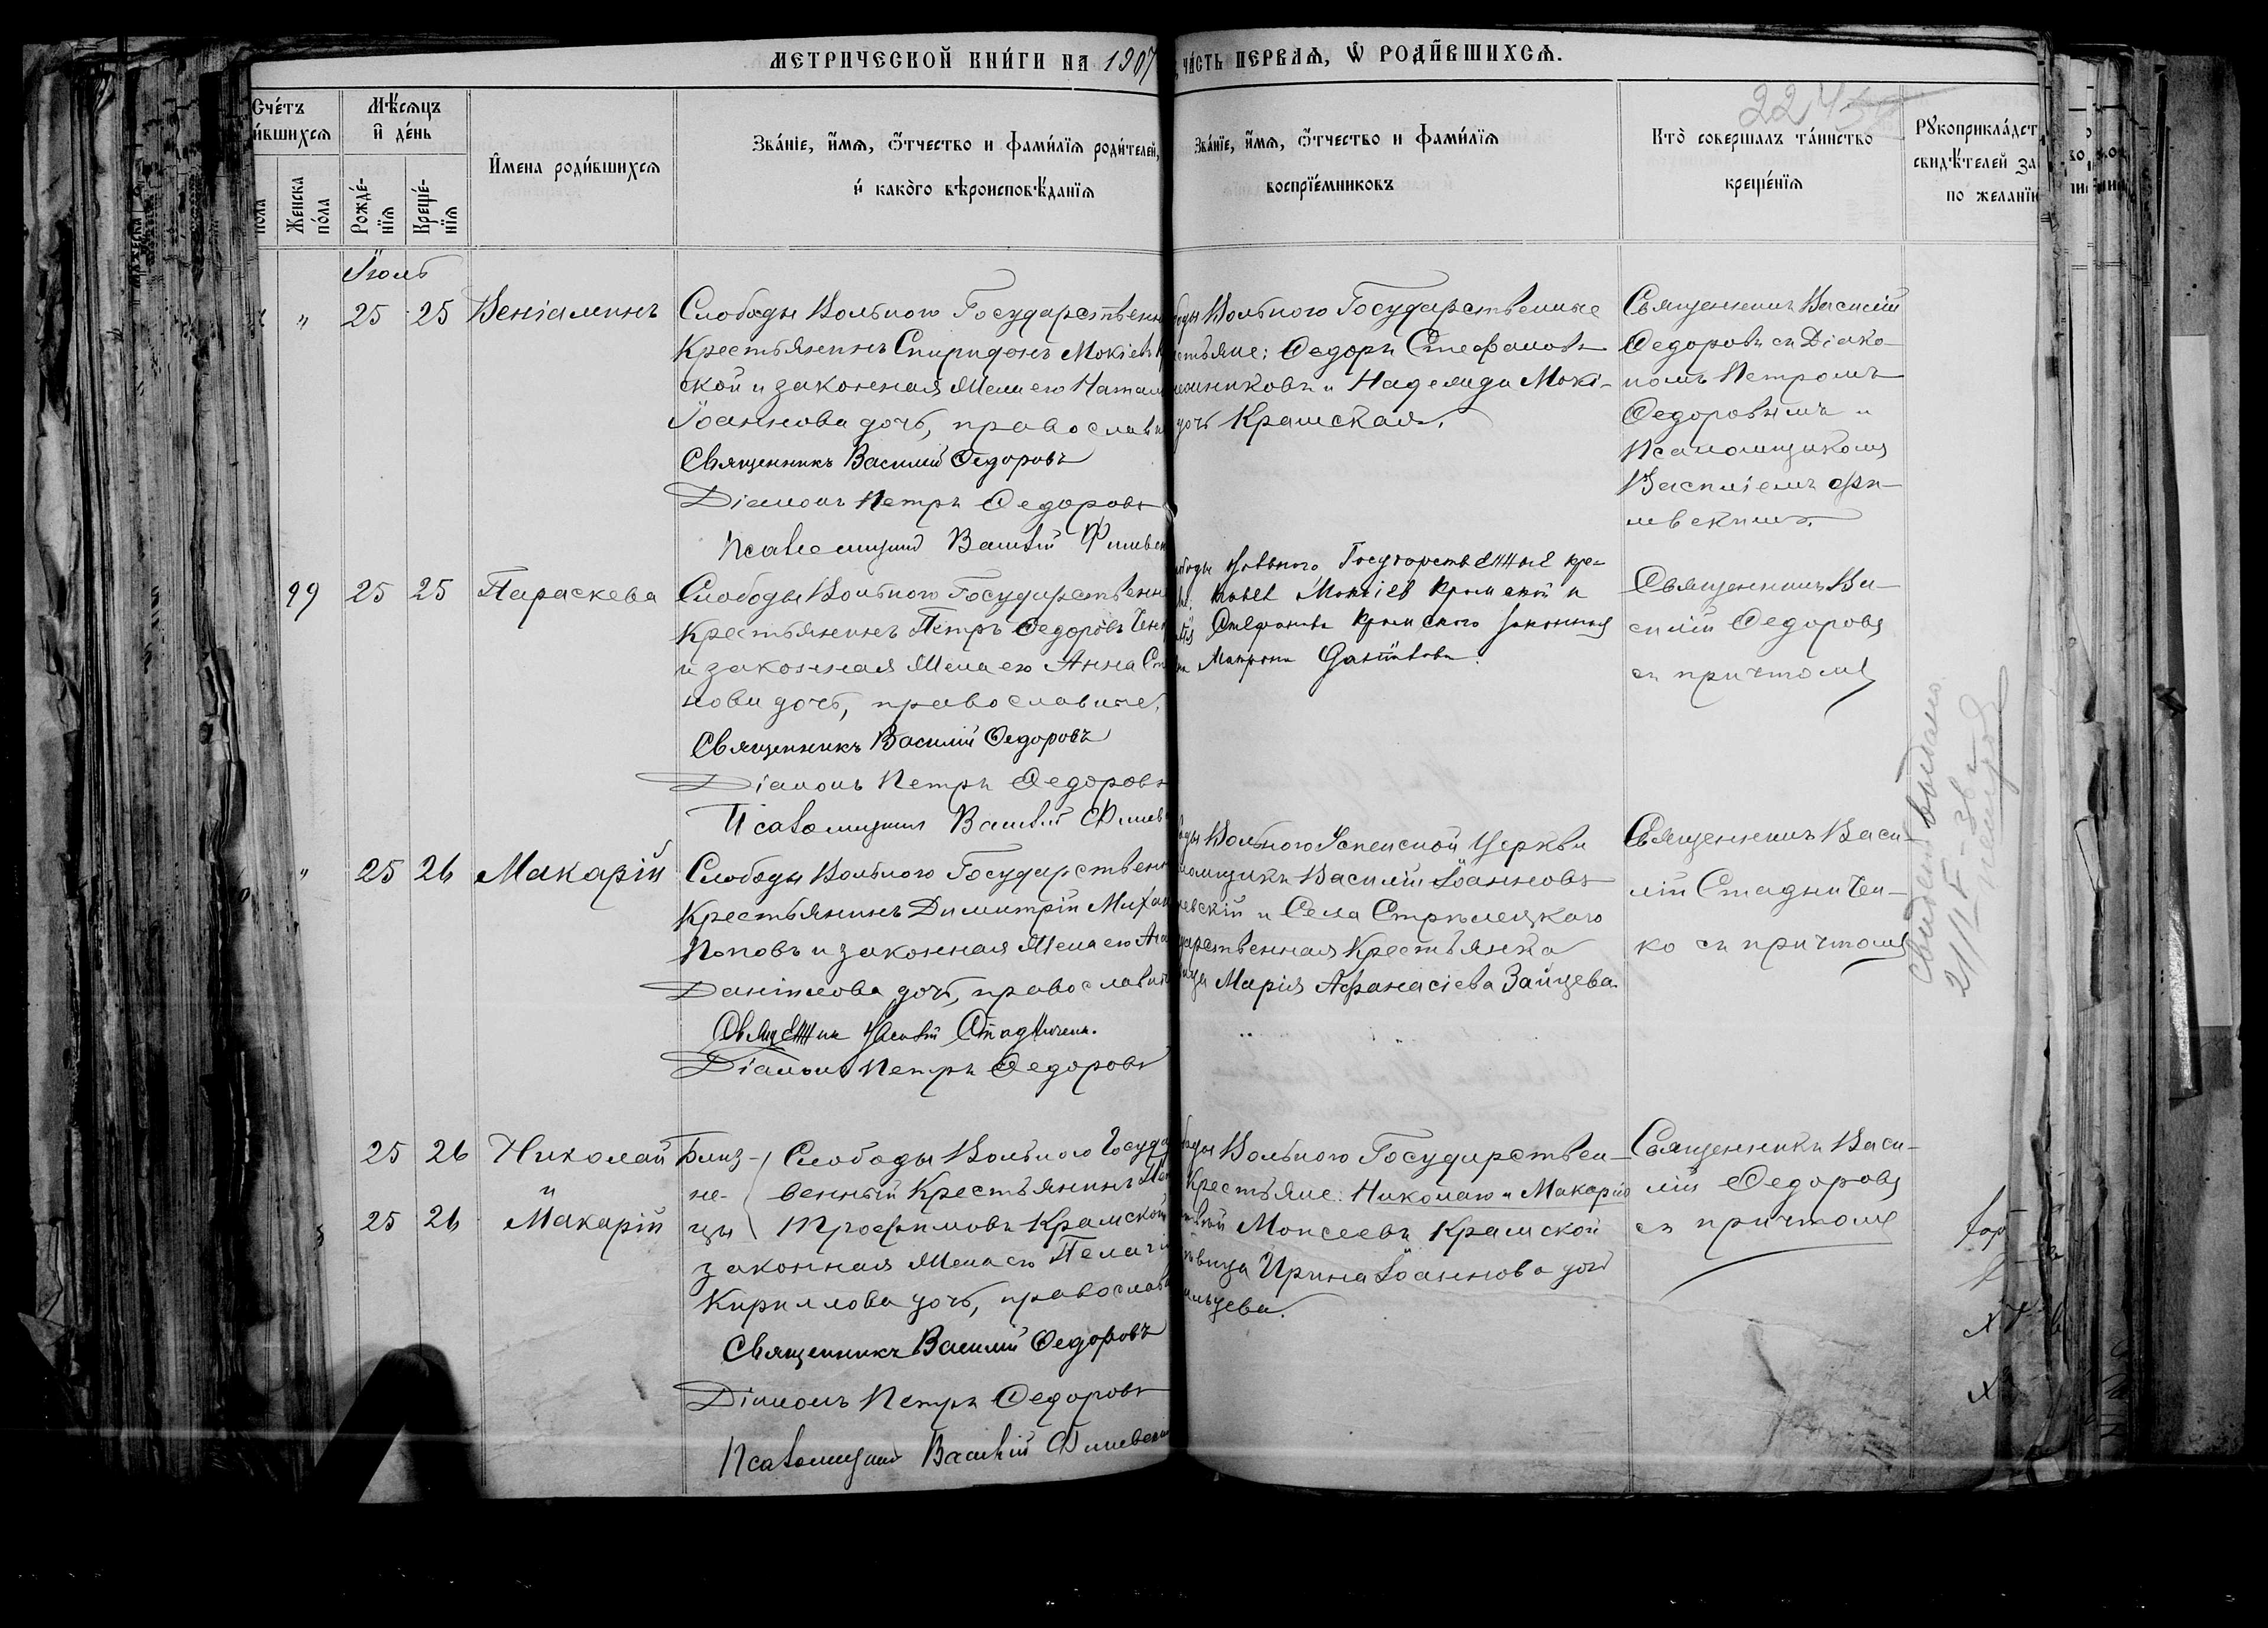 МЕТРИЧЕСКОЙ КНИ́ГИ НА 1907
ЧА́СТЬ ПЕРВАѦ, Ѡ РОДИ́ВШИХСѦ.
22
Сче́тъ
и́вшихсѧ
Мѣ́сѧцъ
и҆ де́нь
И҆мена роди́вшихсѧ
Зва́нїе, и҆́мѧ, ѻ҆́тчество и фами́лїѧ роди́телей,
и҆ како́го вѣроисповѣ́данїѧ
Зва́нїе, и҆́мѧ, ѻ҆́тчество и фами́лїѧ
воспрїе́мниковъ
Кто̀ совершалъ та́инство
креще́нїѧ
Рꙋкоприкла́дст
свидѣ́телей за
по желанїю
пола
Женска
по́ла
Рожде́-
нїѧ
Креще́-
нїѧ
Іюль
" 25 25 Веніаминъ
Слободы Вольного Государственн
Крестьянинъ Спиридонъ Мокіевъ Кр
ской и законная Жена его Натал
Іоаннова дочь, православн
Священникъ Василій Ѳедоровъ
Діаконъ Петръ Ѳедоровъ
Псаломщикъ Василій Филевск
боды Вольного Государственные
стьяне: Ѳедоръ Стефановъ
никовъ и Надежда Мокі-
дочь Крамская.
Священникъ Василій
Ѳедоровъ съ Діако-
номъ Петромъ
Ѳедоровымъ и
Псаломщикомъ
Василіемъ Фи-
левскимъ.
99 25 25 Параскева
Слободы Вольного Государственн
Крестьянинъ Петръ Ѳедоровъ
и законная Жена его Анна Ст
нова дочь, православные.
Священникъ Василій Ѳедоровъ
Діаконъ Петръ Ѳедоровъ
Псаломщикъ Василій Филевс
боды Вольного Государственные кре-
Мокіев Крамской и
Стефанова Крамского законная
Матрона
Священникъ Ва-
силій Ѳедоровъ
съ причтомъ
" 25 26 Макарій
Слободы Вольного Государственн
Крестьянинъ Димитрій Михаи
Поповъ и законная Жена его Ага
Даніилова дочь, православны
Священникъ Василій Стадниченко.
Діаконъ Петръ Ѳедоровъ
ды Вольного Успенской Церкви
ломщикъ Василій Іоанновъ
левскій и Села Стрѣлецкого
дарственная Крестьянка
вица Марія Афанасіева Зайцева.
Священникъ Васи-
лій Стадничен-
ко съ причтомъ
Свидет. выдано
25 26 Николай
и
25 26 Макарій
Близ-
не-
цы
Слободы Вольного Госуда
венный Крестьянинъ
Трофимовъ Крамской
законная Жена его Пелагі
Кириллова дочь, православ
Священникъ Василій Ѳедоровъ
Діаконъ Петръ Ѳедоровъ
Псаломщикъ Василій Филевскі
боды Вольного Государствен-
Крестьяне: Николаю и Макарію
Моисеевъ Крамской
вица Ирина Іоаннова дочь
льцева.
Священникъ Васи-
лій Ѳедоровъ
съ причтомъ